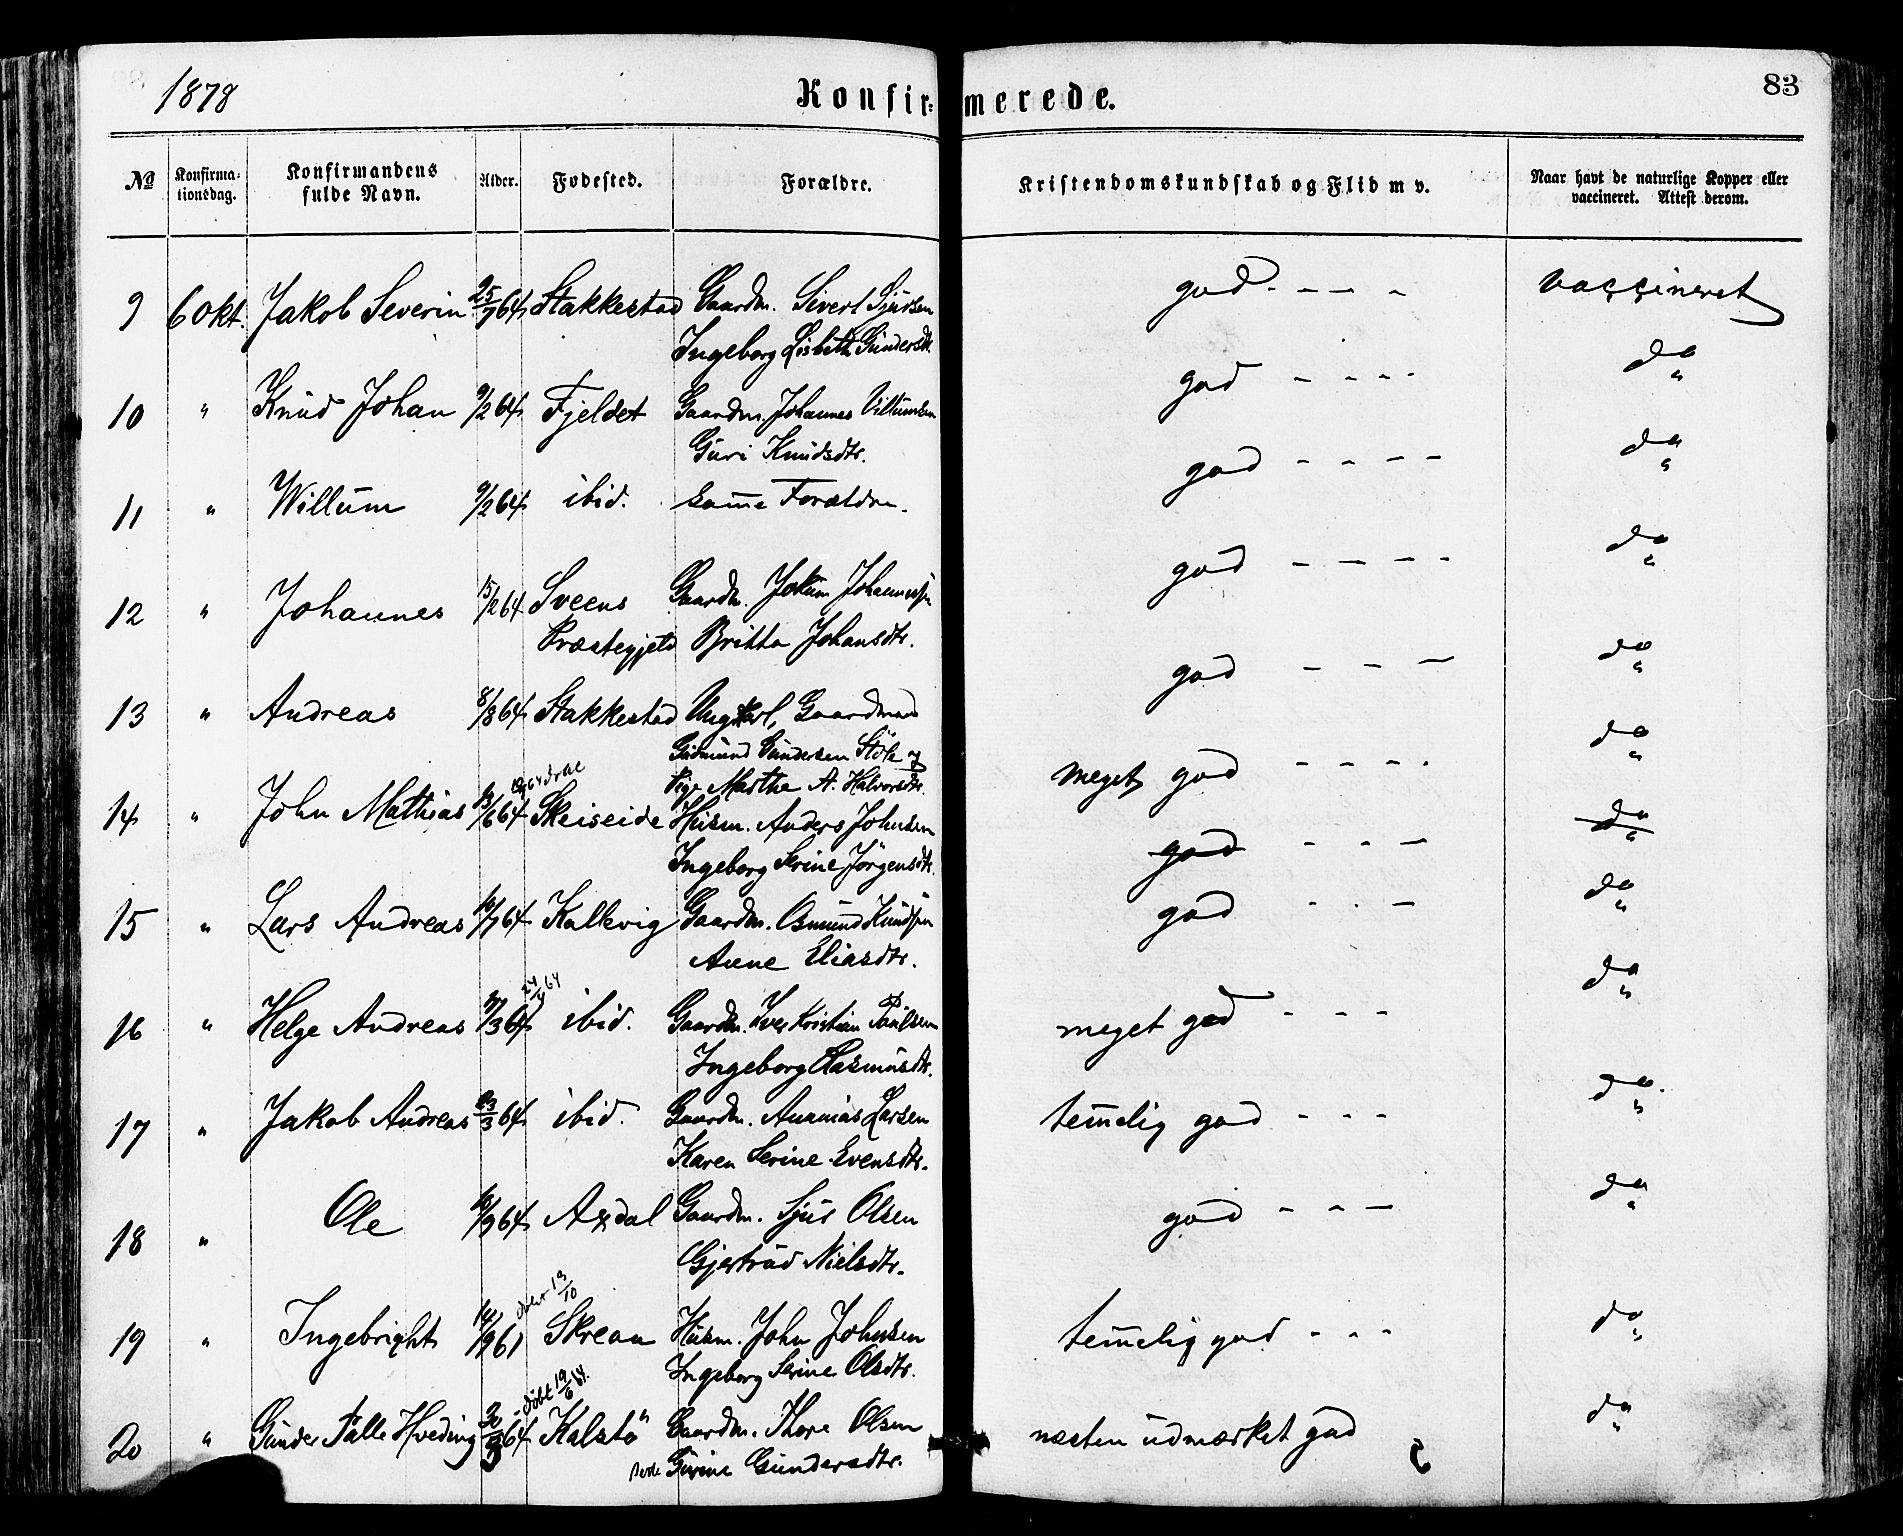 1878 Konfir- merede. 83
No Konfirma- Konfirmandens Alder. Fødested. Forældre. Kristendomskundskab og Flid m v. Naar havt de naturlige Kopper eller
tionsdag. fulde Navn. vaccineret. Attest derom.
9 6 Okt. Jakob Severin 25/7 64 Stakkestad Gaardm. Sivert Sjursen god - - - - vaccineret
Ingeborg Lisbeth Gundersdt.
10 " Knud Johan 9/2 64 Fjeldet Gaardm. Johannes Villumsen god - - - - do "
Guri Knudsdtr.
11 " Willum 9/2 64 ibid. samme Forældre. god - - - - do "
12 " Johannes 15/2 64 Sveens Gaardm. Jokum Johannessen god - - - - do "
Præstegjeld Britta Johansdtr.
13 " Andreas 8/8 64 Stakkestad Ungkarl, Gaardmand god - - - do "
Gudmund Gundersen Støle og
Pige Marthe A. Halvorsdtr.
14 " John Mathias 13/6 64 Skeiseide Husm. Anders Johnsen meget god - - - - do "
Ingeborg Serine Jörgensdtr. god - - - do "
15 " Lars Andreas 10/7 64 Kallevig Gaardm. Osmund Knudsen god - - - do "
Anne Eliasdtr.
16 " Helge Andreas /3 64 24/4 64 ibid. Gaardm. Iver Kristian Paulsen meget god - - - do "
Ingeborg Rasmusdtr.
17 " Jakob Andreas 23/3 64 ibid. Gaardm. Ananias Larsen temmelig god - - - do "
Karen Serine Evensdtr.
18 " Ole 10/9 64 Axdal Gaardm. Sjur Olsen god - - - do "
Gjertrud Nielsdtr.
19 " Ingebright 14/9 61 döbt 13/10 Skreau Husm. John Johnsen temmelig god - - - do "
Ingeborg Serine Olsdtr.
20 " Gunder Palle Hveding 64 döbt 19/6 64. Kalstö Gaardm. Thore Olsen næsten udmærket god do "
Gurine Gundersdtr.